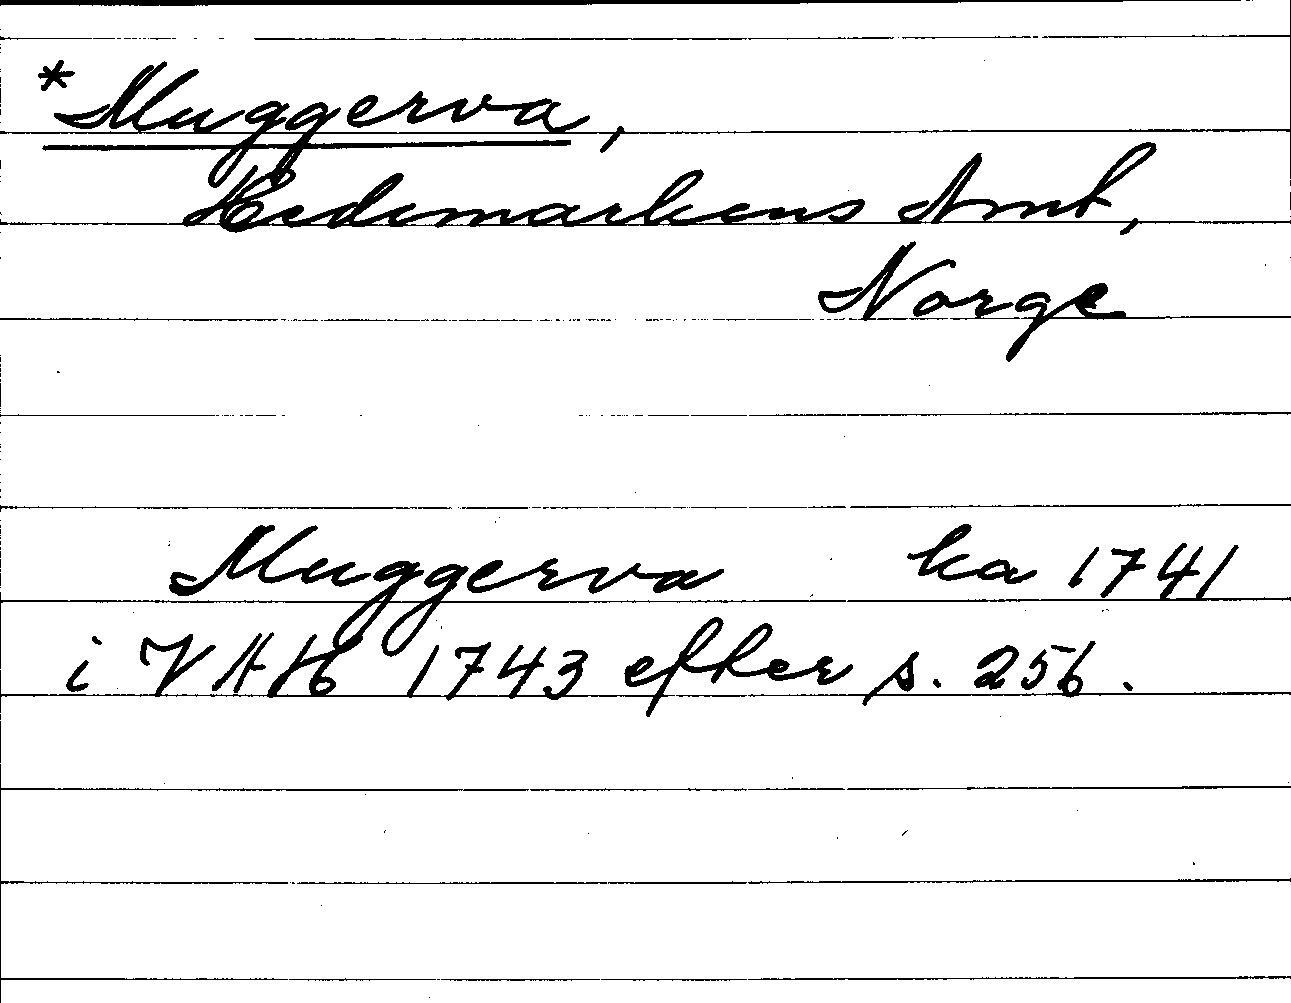 *Muggerva,
Hedemarkens Amt,
Norge
Muggerva ka 1741
i VAH 1743 efter s. 256.